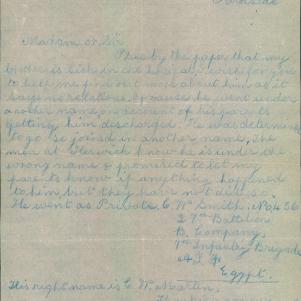 Parkside
Madam or Sir
I see by the paper that my
brother is sick in the
to help me find out more about him as it
says no relations, because he went under
another name, on account of his parents
getting him discharged. He was determined
to go so joined in another name, The
men at Keswick know he is under the
wrong name & promised to let my
parents know if anything happened
to him, but they have not done so.
He went as Private. C. Wm Smith. No. 456
27th Battalion
B. Company
7th Infantry Brigade
A. I. F.
Egypt.
His right name is C W